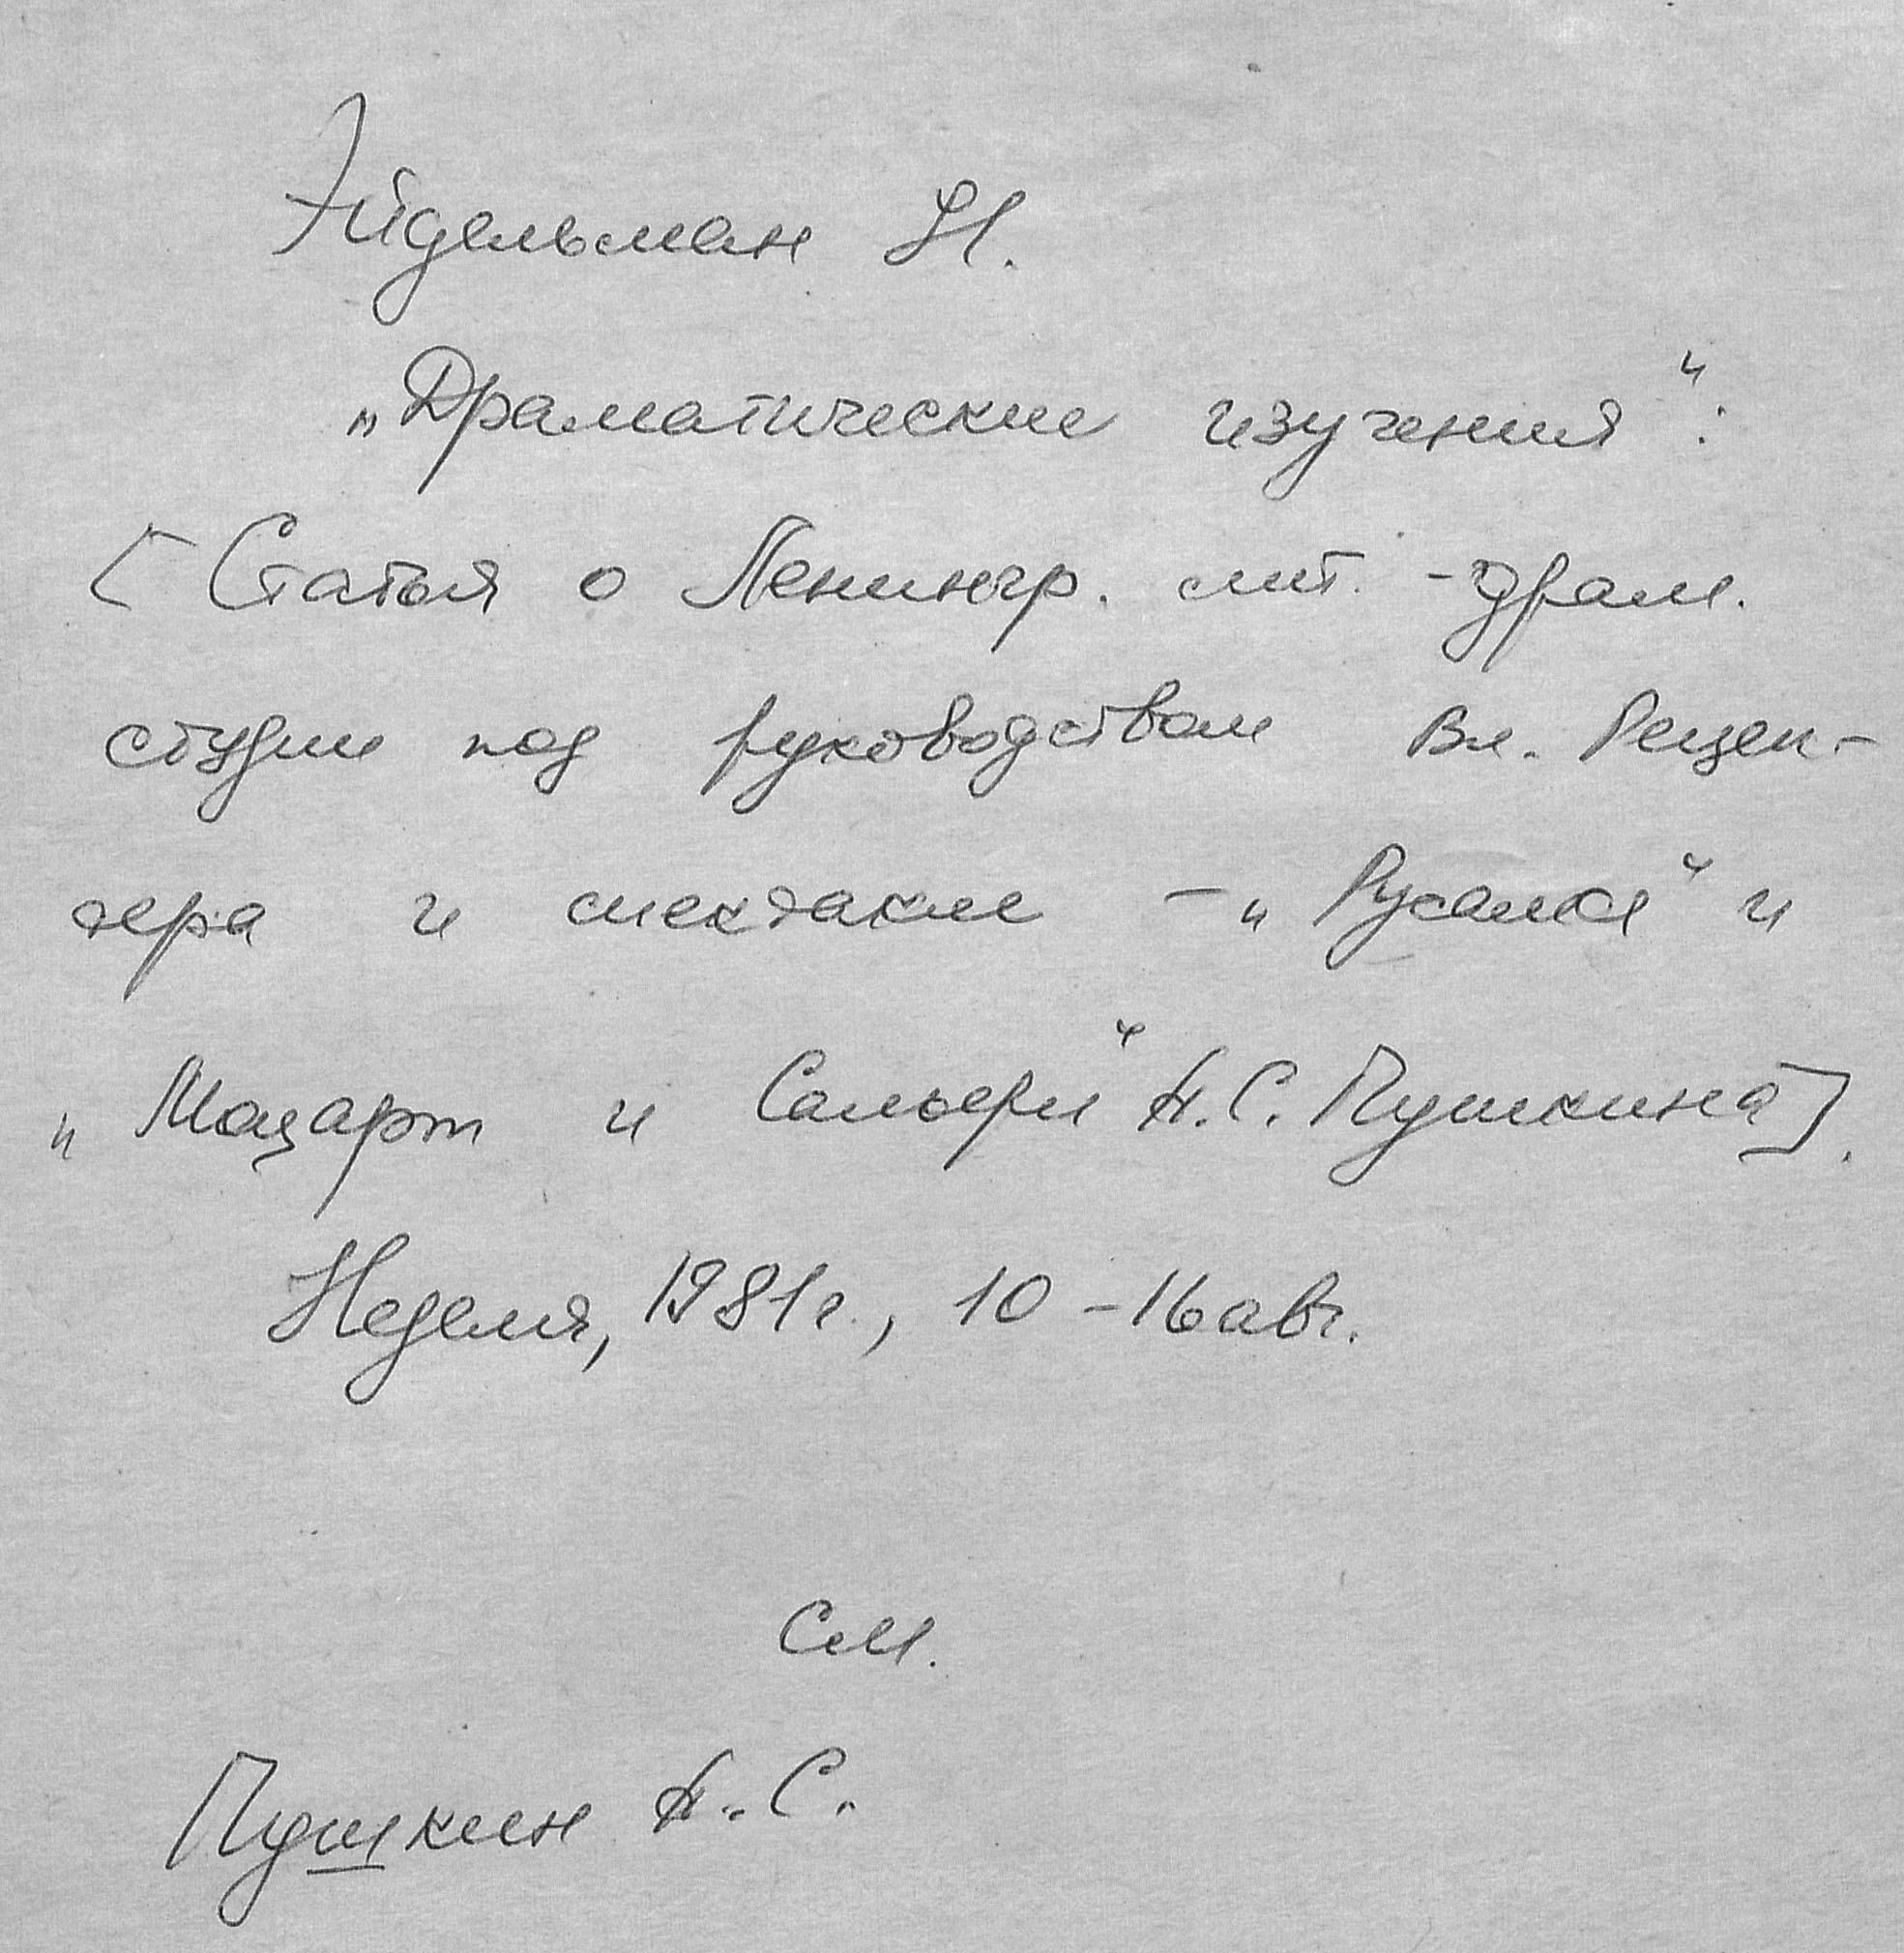 Эйдельман Н.
„Драматические изучения“:
[Статья о Ленингр. лит.-драм.
студии под руководством Вл. Рецеп-
тера и спектакле – „Русалка“ и
„Моцарт и Сальери“ А.С. Пушкина].
Неделя, 1981г., 10 – 16 авг.
См.
Пушкин А.С.